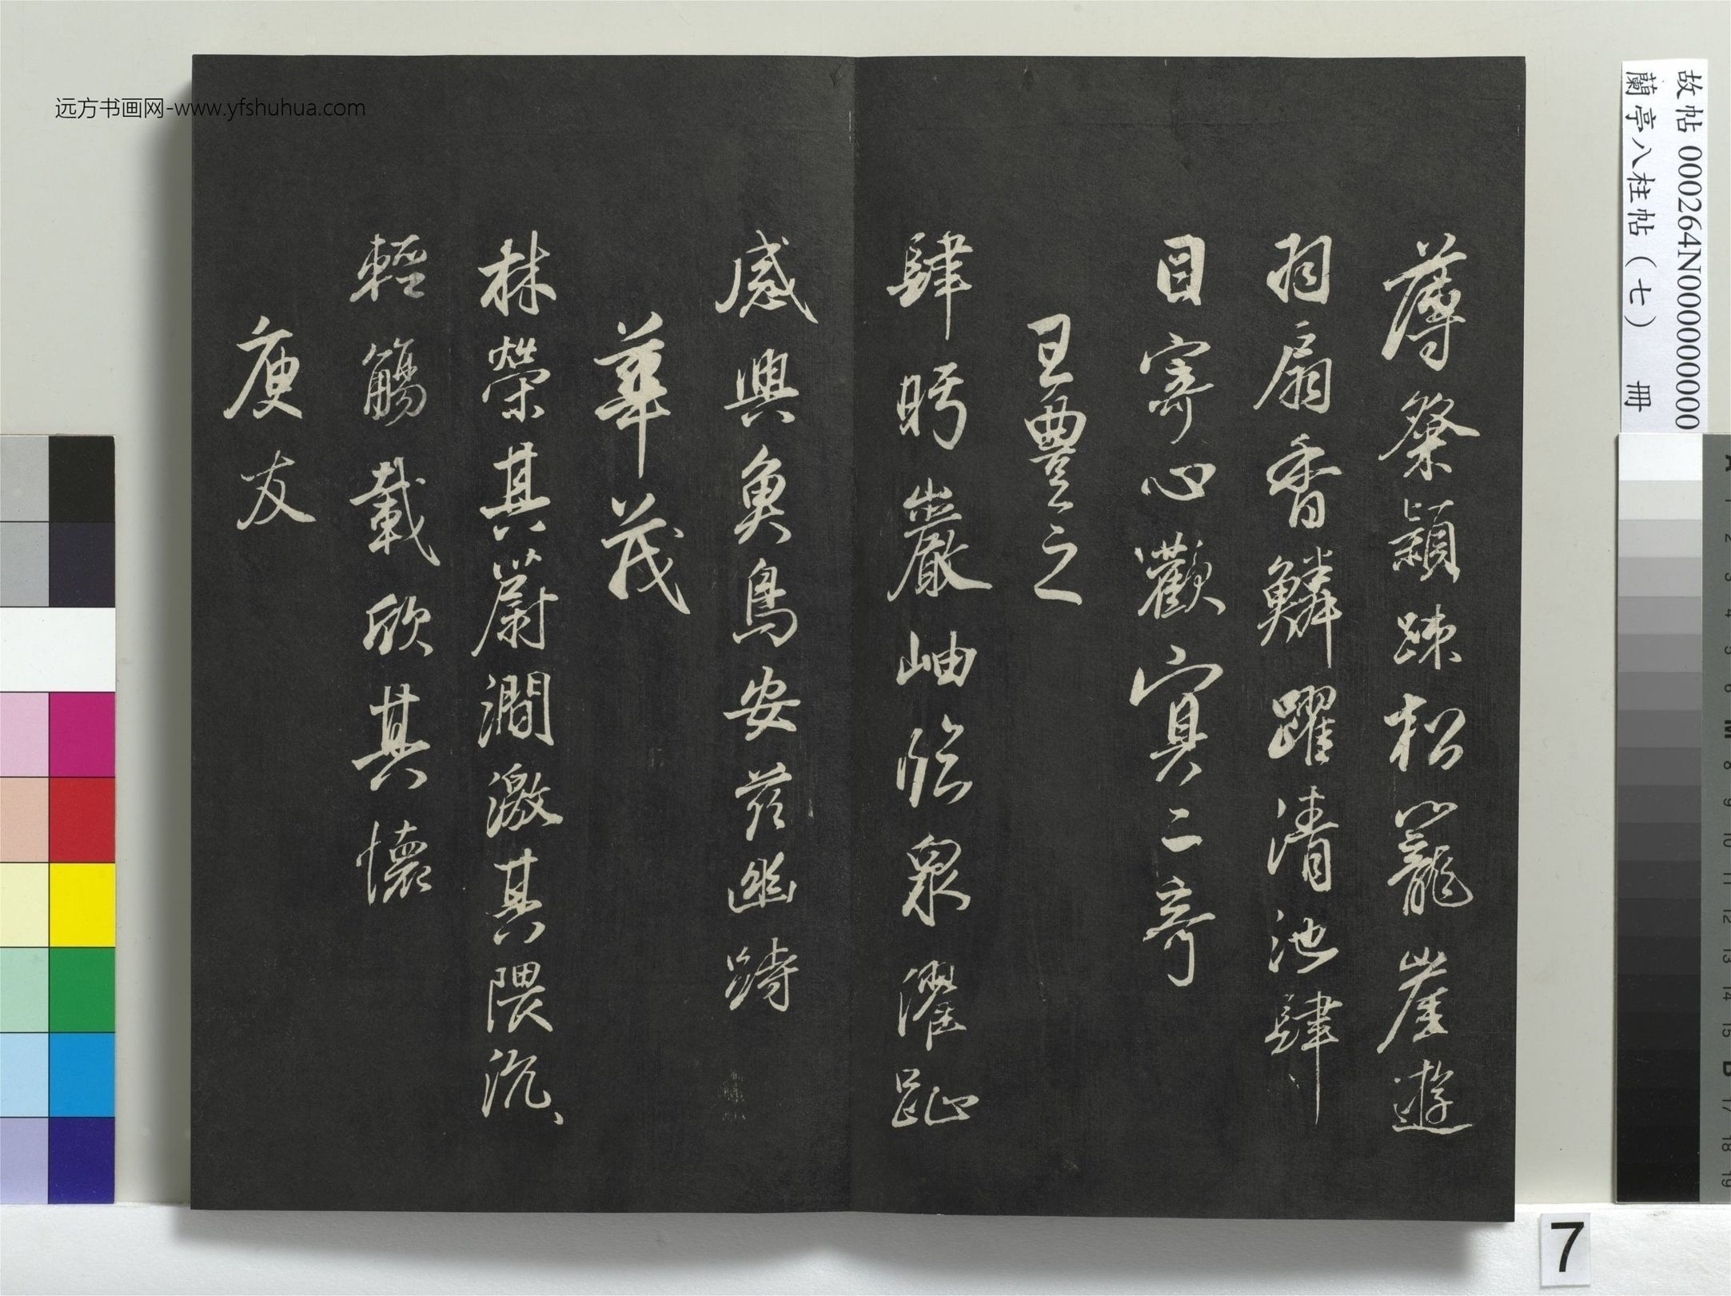 薄粲穎疎松籠崖遊
羽扇香鱗躍清池肆
目寄心歡冥二奇
王豐之
肆眄巖岫臨泉濯趾
感興魚鳥安茲幽跱
華茂
林榮其蔚澗激其隈汎汎
輕觴載欣其懷
庾友
远方书画网-www.yfshuhua.com
故帖 000264N000000000
蘭亭八柱帖（七） 冊
7